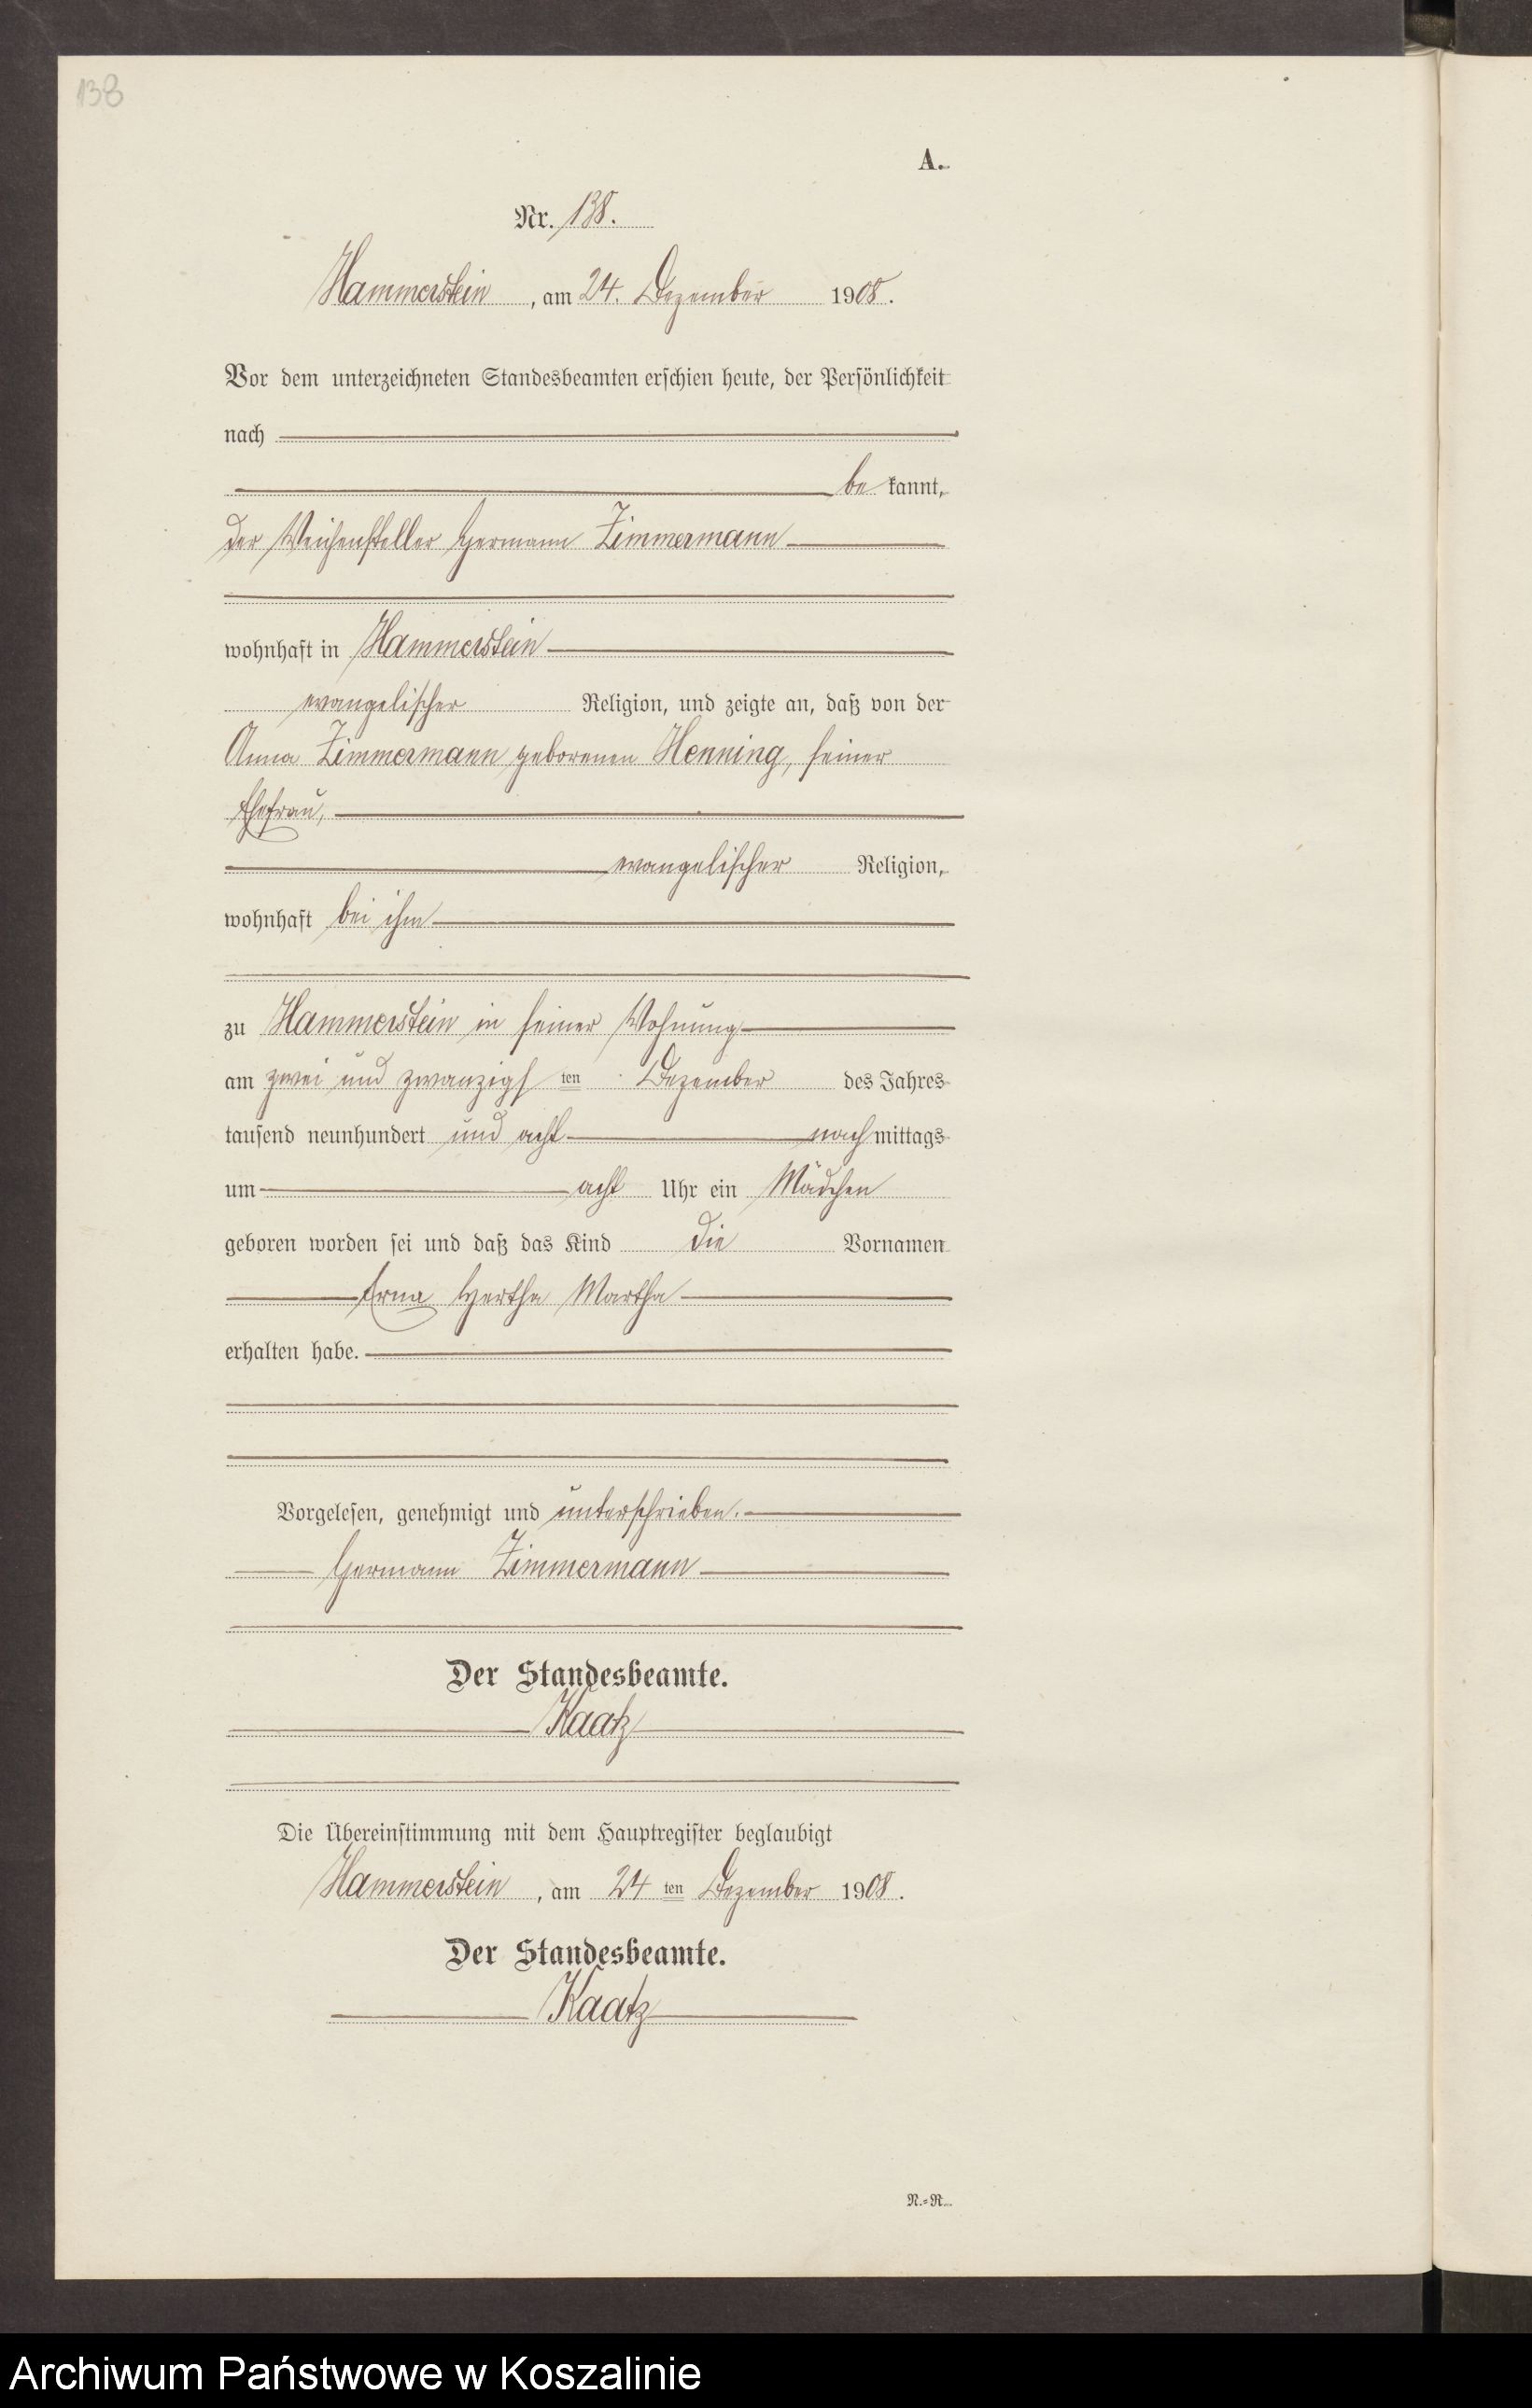 138
A.
Nr. 138.
Hammerstein, am 24. Dezember 1908.
Vor dem unterzeichneten Standesbeamten erschien heute, der Persönlichkeit
nach
be kannt,
der Weichensteller Hermann Zimmermann
wohnhaft in Hammerstein
evangelischer Religion, und zeigte an, daß von der
Anna Zimmermann geborenen Henning, seiner
Ehefrau,
evangelischer Religion,
wohnhaft bei ihm
zu Hammerstein in seiner Wohnung
am zwei und zwanzigsten Dezember des Jahres
tausend neunhundert und acht nach mittags
um acht Uhr ein Mädchen
geboren worden sei und daß das Kind die Vornamen
Erna Hertha Martha
erhalten habe.
Vorgelesen, genehmigt und unterschrieben.
Hermann Zimmermann
Der Standesbeamte.
Kaatz
Die Übereinstimmung mit dem Hauptregister beglaubigt
Hammerstein, am 24 ten Dezember 1908.
Der Standesbeamte.
Kaatz
N.=R.
Archiwum Państwowe w Koszalinie